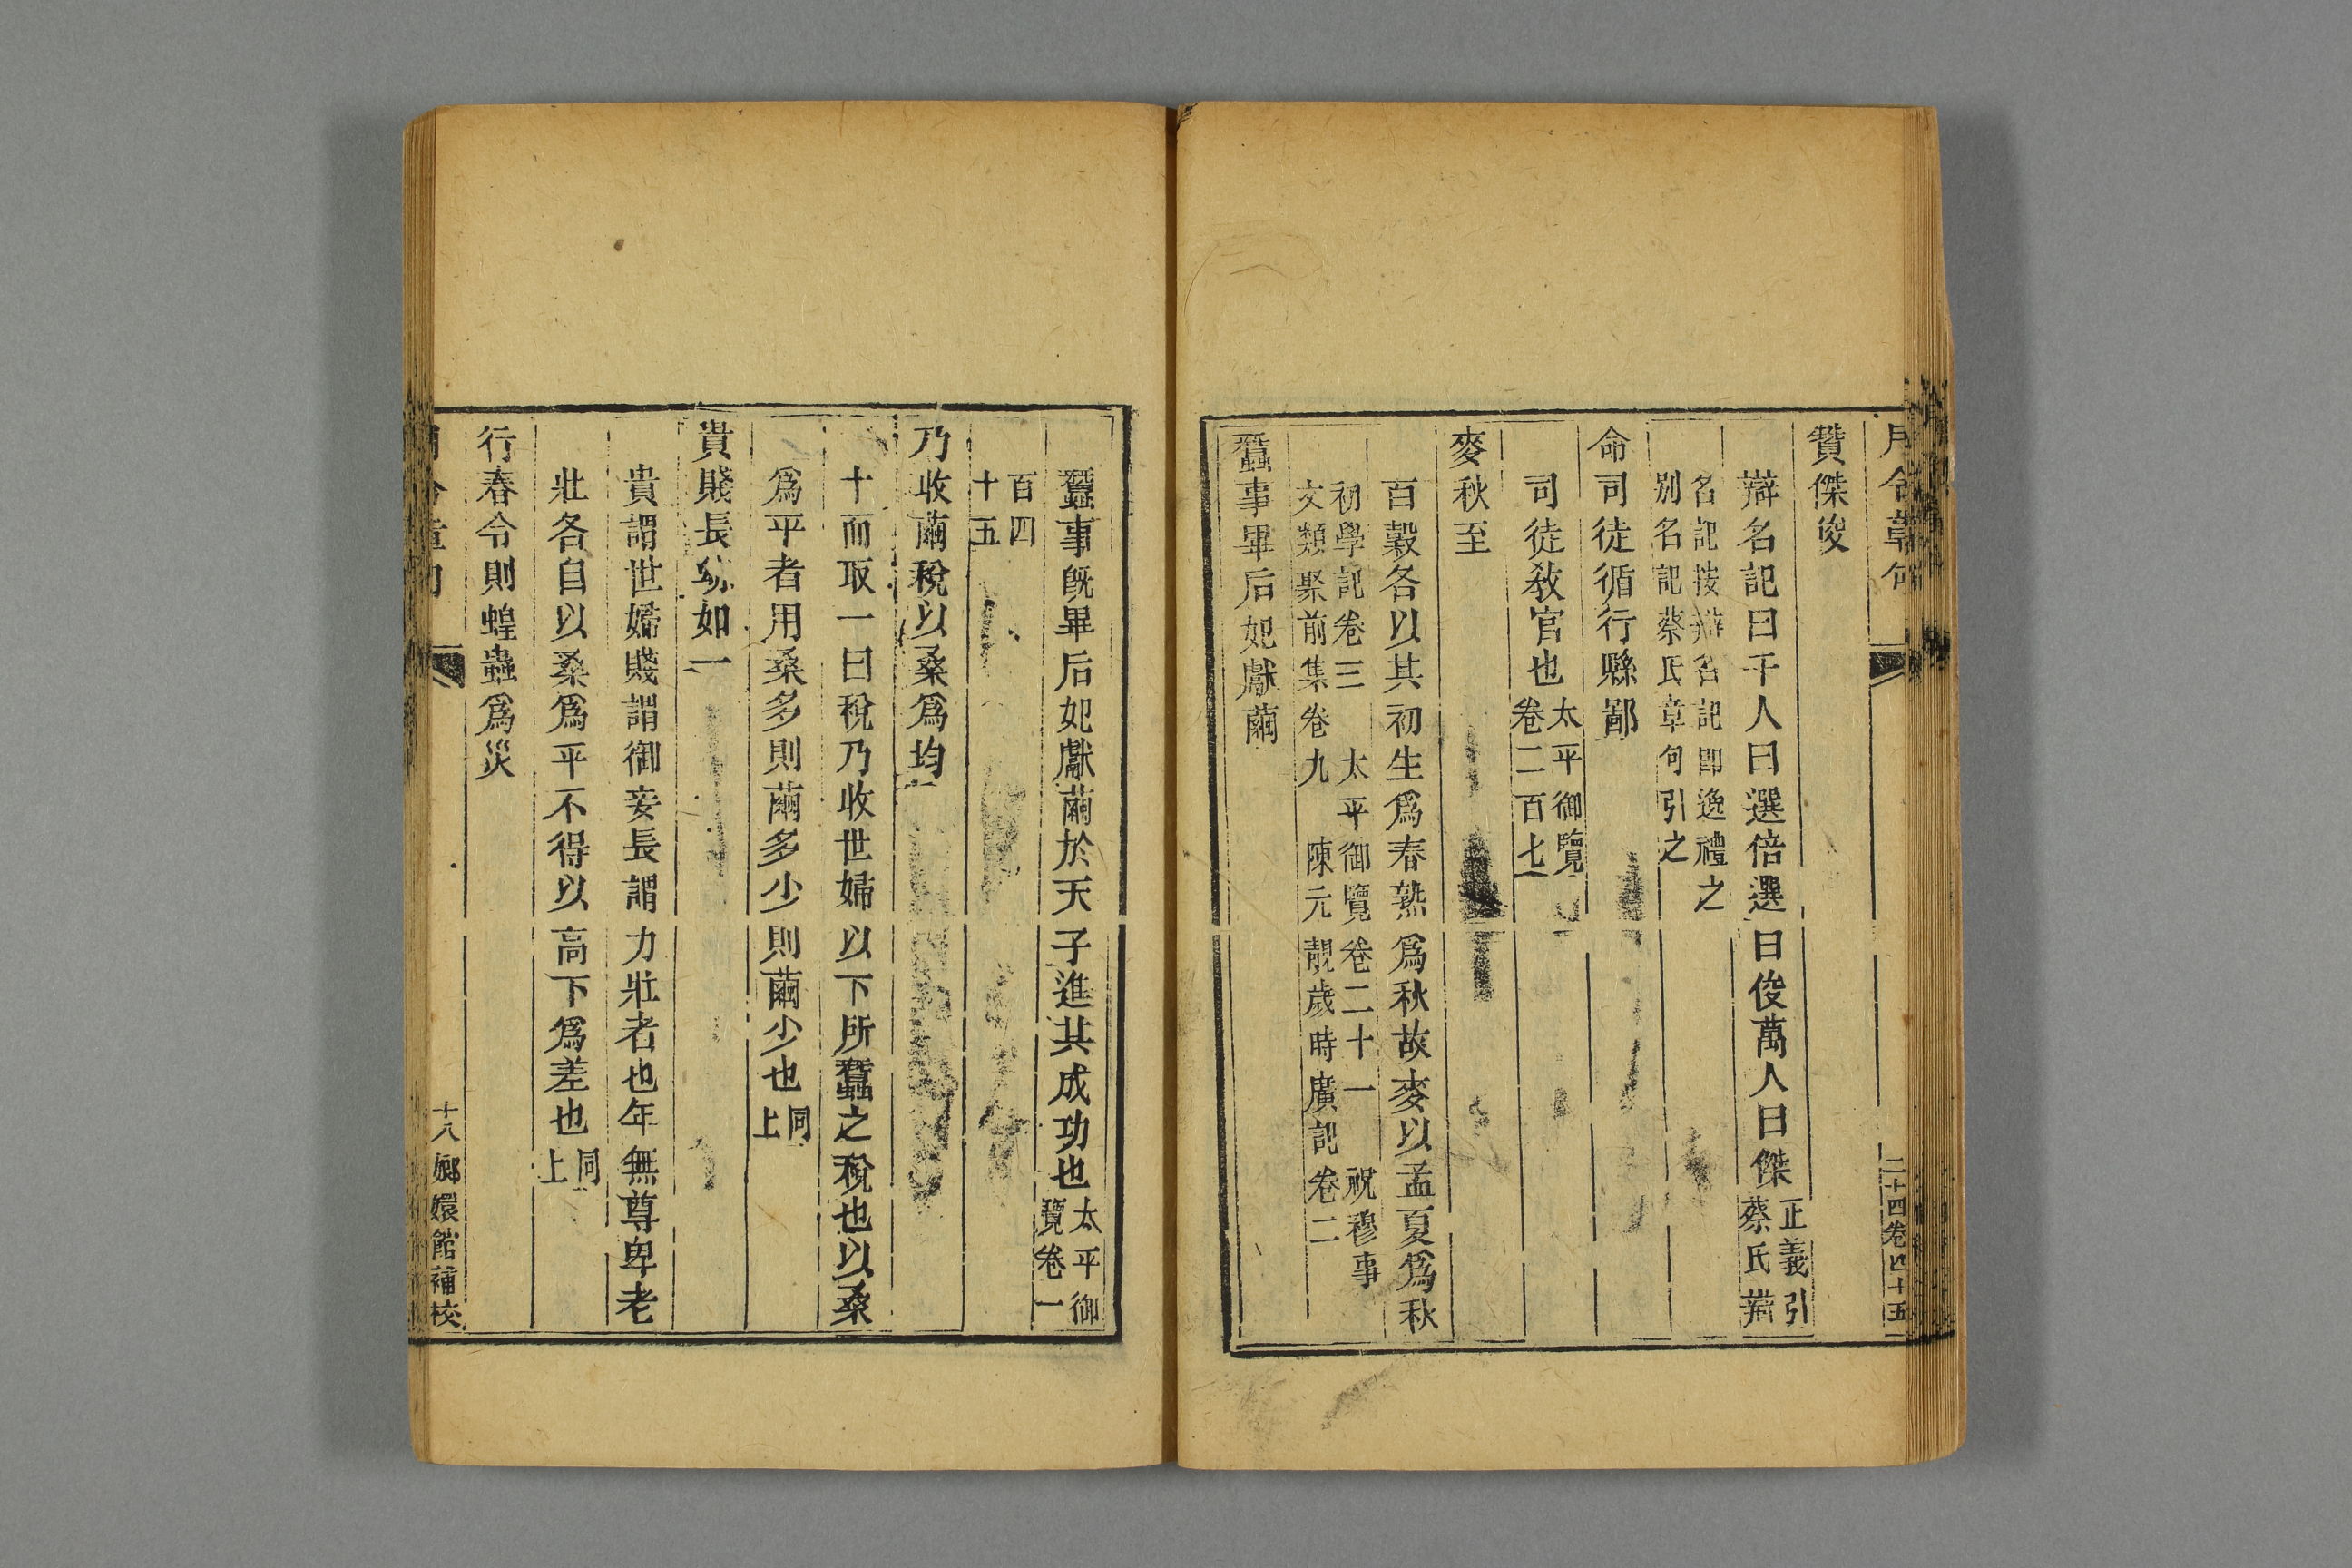 月令章句
二十四卷四十五
贊傑俊
辯名記曰千人曰選倍選曰俊萬人曰傑正義引
蔡氏辯
名記按辯名記卽逸禮之
别名記蔡氏章句引之
命司徒循行縣鄙
司徒教官也太平御覽
卷二百七
麥秋至
百穀各以其初生爲春熟爲秋故麥以孟夏爲秋
初學記卷三 太平御覽卷二十一 祝穆事
文類聚前集卷九 陳元靚歲時廣記卷二
蠶事畢后妃獻繭
蠶事既畢后妃獻繭於天子進其成功也太平御
覽卷一
百四
十五
乃收繭稅以桑爲均
十而取一曰稅乃收世婦以下所蠶之稅也以桑
爲平者用桑多則繭多少則繭少也同
上
貴賤長幼如一
貴謂世婦賤謂御妾長謂力壯者也年無尊卑老
壯各自以桑爲平不得以高下爲差也同
上
行春令則蝗蟲爲災
十八
嫏嬛館補校